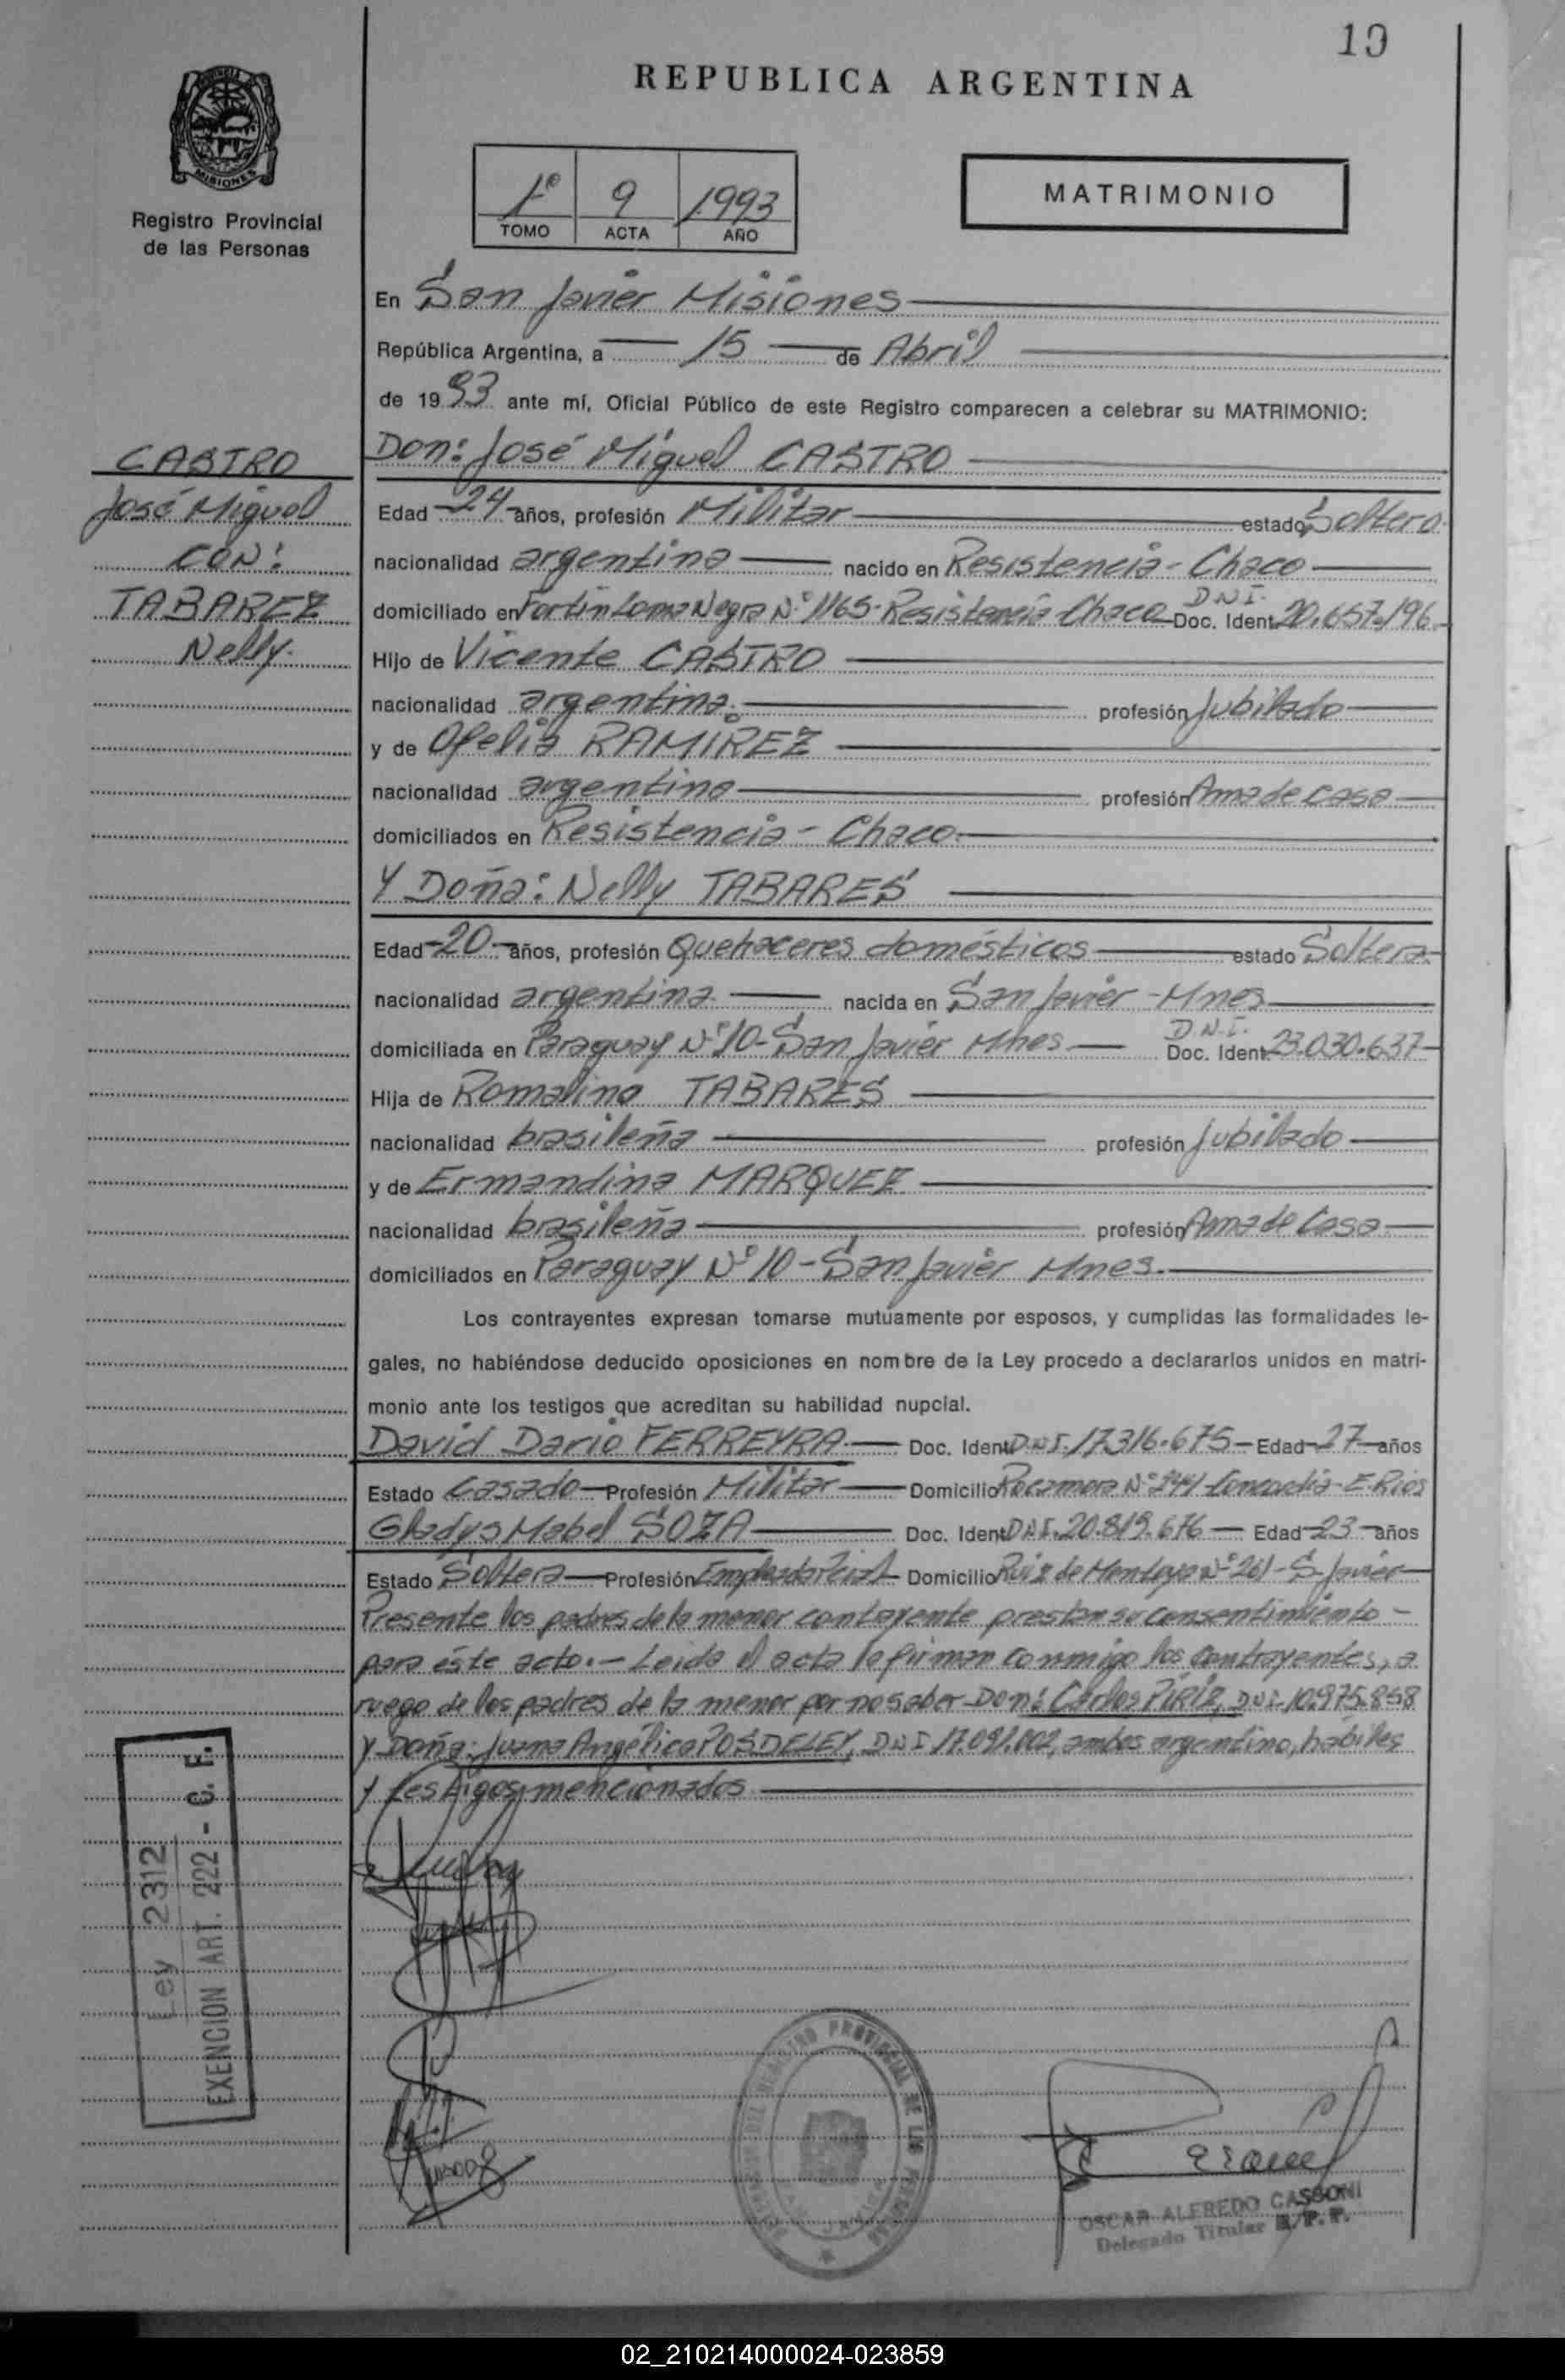 19
REPUBLICA ARGENTINA
MISIONES
Registro Provincial
de las Personas
1º 9 1993
TOMO ACTA AÑO
MATRIMONIO
En San Javier Misiones
República Argentina, a 15 de Abril
de 1993 ante mí, Oficial Público de este Registro comparecen a celebrar su MATRIMONIO:
CASTRO
José Miguel
CON:
TABAREZ
Nelly.
Don: José Miguel CASTRO
Edad 24 años, profesión Militar estado Soltero
nacionalidad argentina nacido en Resistencia - Chaco
domiciliado en Fortín Loma Negra Nº 1165 - Resistencia - Chaco D.N.I. Doc. Ident. 20.657.196
Hijo de Vicente CASTRO
nacionalidad argentina. profesión Jubilado
y de Ofelia RAMIREZ
nacionalidad argentina profesión Ama de casa
domiciliados en Resistencia - Chaco
Y Doña: Nelly TABARES
Edad 20 años, profesión Quehaceres domésticos estado Soltera
nacionalidad argentina nacida en San Javier - Mnes
domiciliada en Paraguay Nº 10 - San Javier Mnes D.N.I. Doc. Ident. 23.030.637
Hija de Romalino TABARES
nacionalidad brasileña profesión Jubilado
y de Ermandina MARQUEZ
nacionalidad brasileña profesión Ama de Casa
domiciliados en Paraguay Nº 10 - San Javier Mnes.
Los contrayentes expresan tomarse mutuamente por esposos, y cumplidas las formalidades le-
gales, no habiéndose deducido oposiciones en nombre de la Ley procedo a declararlos unidos en matri-
monio ante los testigos que acreditan su habilidad nupcial.
David Dario FERREYRA Doc. Ident. D.N.I. 17.316.675 Edad 27 años
Estado Casado Profesión Militar Domicilio Rocamora Nº Concordia - E. Rios
Gladys Mabel SOZA Doc. Ident. D.N.I. 20.819.676 Edad 23 años
Estado Soltera Profesión Domicilio Ruiz de Montoya Nº 261 - S. Javier
Presente los padres de la menor contayente prestan su consentimiento -
para éste acto. - Leida el acta la firman conmigo los contrayentes, a
ruego de los padres de la menor por no saber Don: Carlos PIRIZ, D.N.I. 10.975.858
y Doña: Juana Angélica POSDELEY, D.N.I 17.091.002, ambos argentino, habiles
y testigos mencionados.
Ley 2312
EXENCION ART. 222 - C. F.
REGISTRO PROVINCIAL DE LAS PERSONAS
OSCAR ALFREDO CASSONI
Delegado Titular R.P.P.
02_210214000024-023859